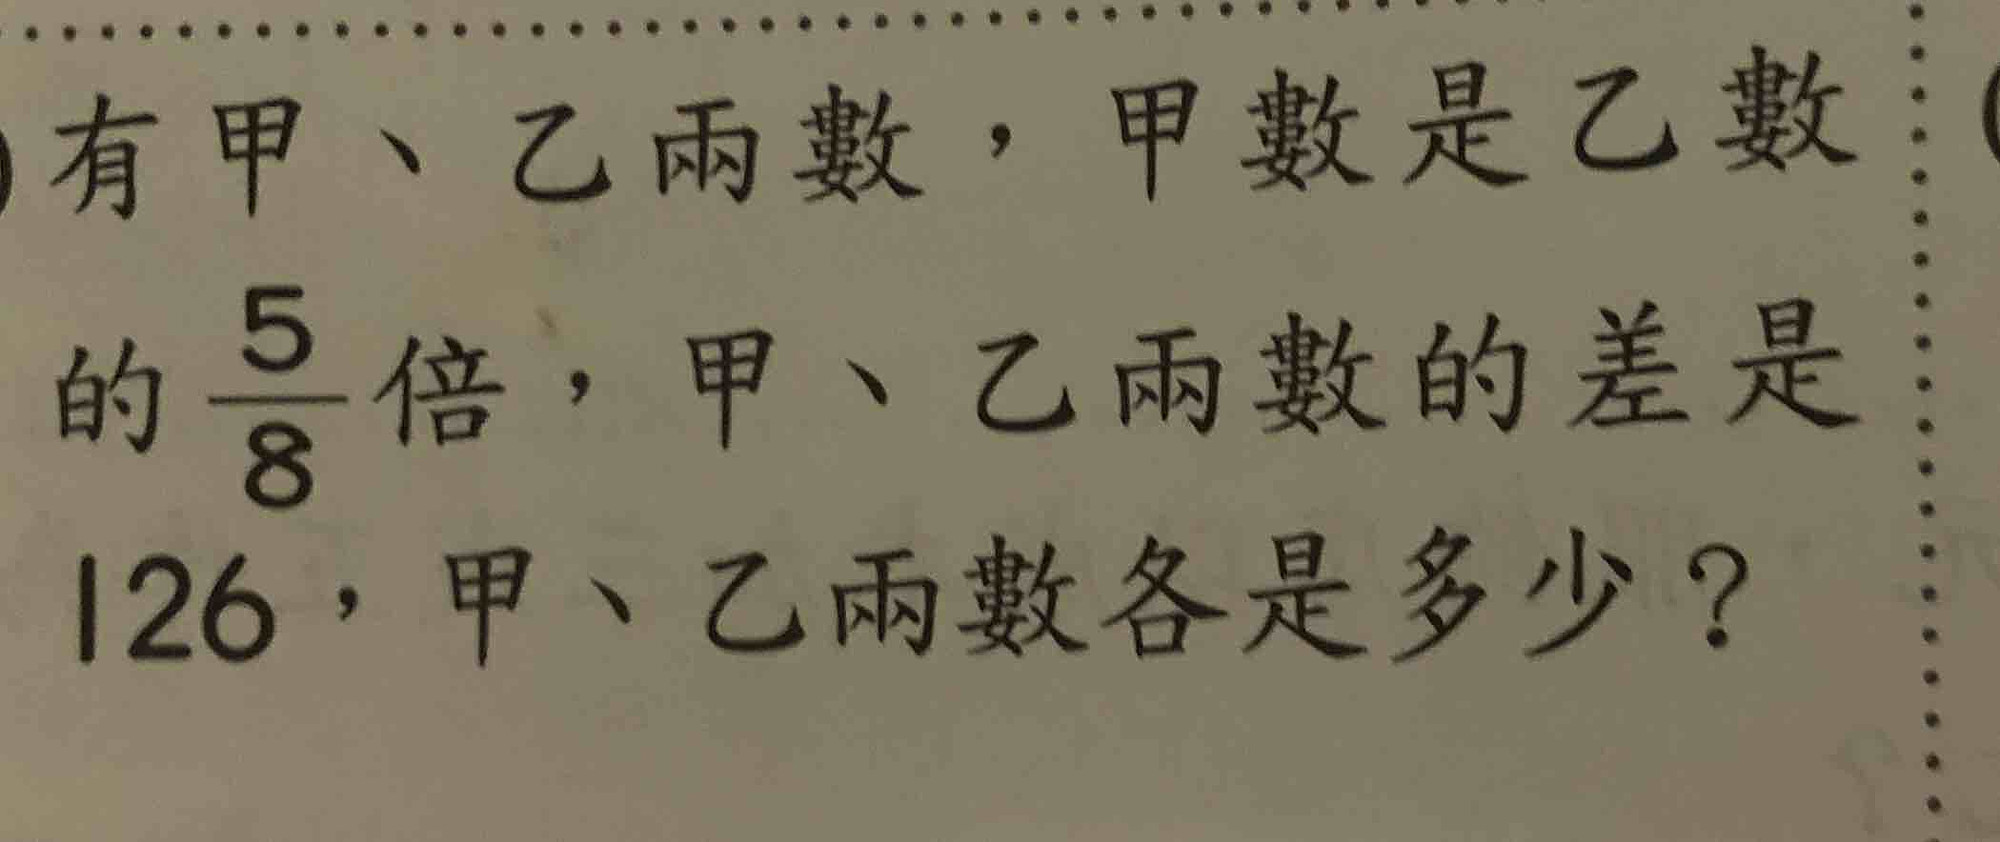 有甲、乙兩數，甲數是乙數
的 5/8 倍，甲、乙兩數的差是
126，甲、乙兩數各是多少？